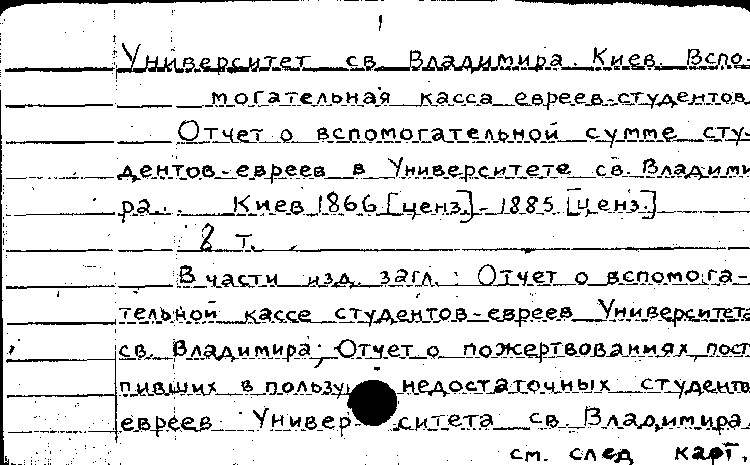 1
Университет св. Владимира. Киев. Вспо-
могательная касса евреев-студентов.
Отчет о вспомогательной сумме сту-
дентов-евреев в Университете св. Владими
ра... Киев 1866 [ценз.] - 1885 [ценз.]
8 т.
В части изд. загл.: Отчет о вспомога-
тельной кассе студентов-евреев Университета
св. Владимира; Отчет о пожертвованиях, пост
пивших в пользу недостаточных студенто
евреев Универ-ситета св. Владимира.
см. след карт.